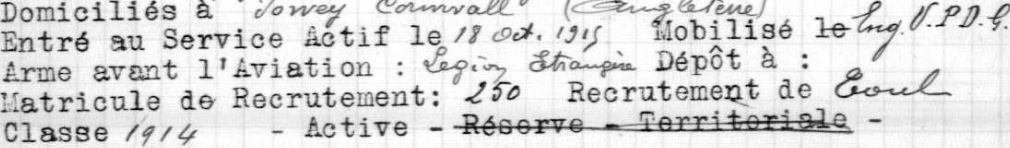 Domiciliés à Fowey Cornwall (Angleterre)
Entré au Service Actif le 18 Oct. 1915 Mobilisé le Eng. V.P.D.G.
Arme avant l'Aviation : Légion Etrangère Dépôt à :
Matricule de Recrutement: 250 Recrutement de Toul
Classe 1914 - Active - Réserve - Territoriale -